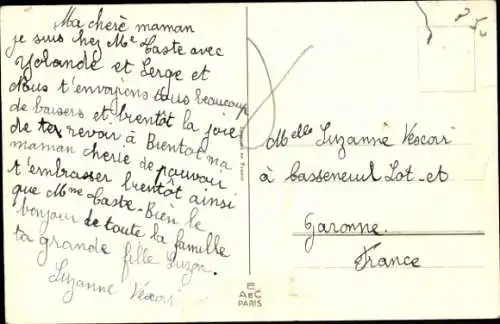 Ma chere maman
je suis chez Me Caste avec
Yolande et Serge et
Nous t'envoyons tous beaucoup
de baisers et bientôt la joie
de te revoir à Bientot ma
maman cherie de pouvoir
t'embrasser bientôt ainsi
que Mme Caste. Bien le
bonjour de toute la famille
ta grande fille Suzon.
Suzanne Vescovi
Melle Suzanne Vescovi
à Casseneuil Lot-et
Garonne.
France
ABC
PARIS